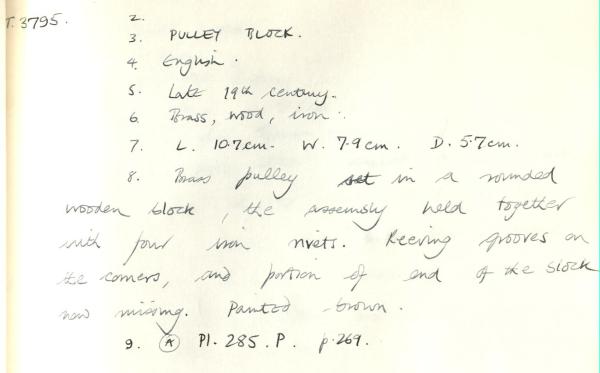 T.3795.
2.
3. PULLEY BLOCK.
4. English.
5. Late 19th century.
6 Brass, wood, iron.
7. L. 10.7cm. W. 7.9cm. D. 5.7cm.
8. Brass pulley set in a rounded
wooden block, the assembly held together
with four iron rivets. Reeving grooves on
the corners, and portion of end of the block
now missing. Painted brown.
9. A Pl. 285. P. p.269.